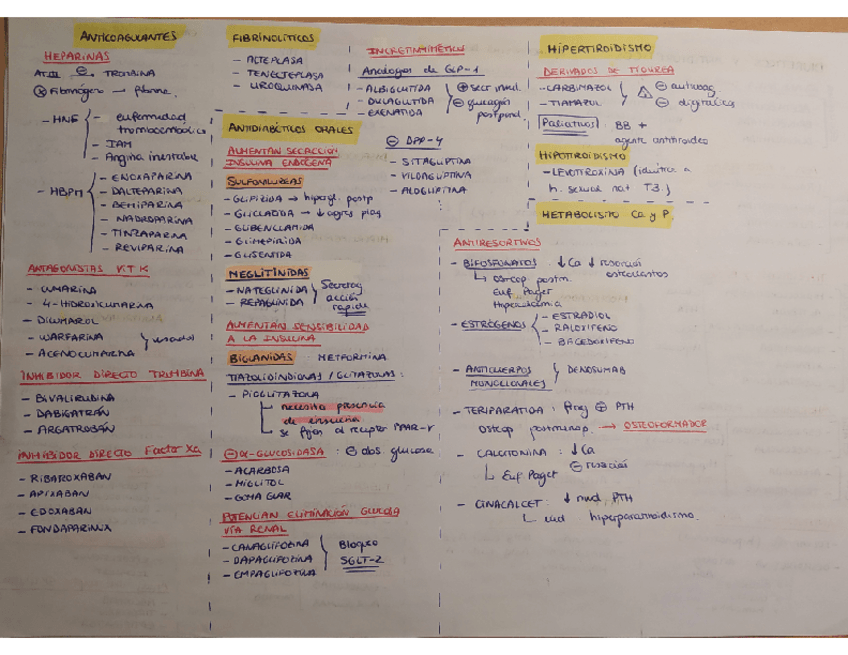 ANTICOAGULANTES
HEPARINAS
ATIII ⊖ TROMBINA
ⓧ Fibrinógeno → fibrina.
- HNF
- enfermedad
tromboembólica
- IAM
- Angina inestable
- HBPM
- ENOXAPARINA
- DALTEPARINA
- BEMIPARINA
- NADROPARINA
- TINZAPARINA
- REVIPARINA
ANTAGONISTAS VIT K
- CUMARINA
- 4-HIDROXICUMARINA
- DICUMAROL
- WARFARINA
- ACENOCUMARINA
usados
INHIBIDOR DIRECTO TROMBINA
- BIVALIRUDINA
- DABIGATRÁN
- ARGATROBÁN
INHIBIDOR DIRECTO Factor Xa
- RIBAROXABAN
- APIXABAN
- EDOXABAN
- FONDAPARINUX
FIBRINOLÍTICOS
- ALTEPLASA
- TENECTEPLASA
- UROQUINASA
ANTIDIABÉTICOS ORALES
AUMENTAN SECRECIÓN
INSULINA ENDÓGENA
SULFONILUREAS
- GLIPIZIDA → hipergl. postp
- GLICLACIDA → ↓ agreg plaq
- GLIBENCLAMIDA
- GLIMEPIRIDA
- GLISENTIDA
MEGLITINIDAS
- NATEGLINIDA
- REPAGLINIDA
Secretag
acción
rápida
AUMENTAN SENSIBILIDAD
A LA INSULINA
BIGUANIDAS : METFORMINA
TIAZOLIDINDIONAS / GLITAZONAS :
- PIOGLITAZONA
necesita presencia
de insulina
se fijan al receptor PPAR-γ
⊖ α-GLUCOSIDASA : ⊖ abs glucosa
- ACARBOSA
- MIGLITOL
- GOMA GUAR
POTENCIAN ELIMINACIÓN GLUCOSA
VÍA RENAL
- CANAGLIFOZINA
- DAPAGLIFOZINA
- EMPAGLIFOZINA
Bloqueo
SGLT-2
INCRETINMIMÉTICOS
Análogos de GLP-1
- ALBIGLUTIDA
- DULAGLUTIDA
- EXENATIDA
⊕ secr insul.
⊖ glucagón
postprand.
⊖ DPP-4
- SITAGLIPTINA
- VILDAGLIPTINA
- ALOGLIPTINA
HIPERTIROIDISMO
DERIVADOS DE TIOUREA
- CARBIMAZOL
- TIAMAZOL
⚠ ⊖ anticoag
⊖ digitálicos
Paliativos : BB +
agente antitiroideo
HIPOTIROIDISMO
- LEVOTIROXINA (idéntica a
h. sexual nat T3.)
METABOLISMO Ca y P.
ANTIRESORTIVOS
- BIFOSFONATOS : ↓Ca ↓ resorción
osteoclastos
↳ osteop postm.
Enf Paget
Hipercalcemia
- ESTRÓGENOS
- ESTRADIOL
- RALOXIFENO
- BACEDOXIFENO
- ANTICUERPOS
MONOCLONALES
DENOSUMAB
- TERIPARATIDA : Frag ⊕ PTH
osteop postmenop. → OSTEOFORMADOR
- CALCITONINA : ↓Ca
⊖ resorción
↳ Enf Paget
- CINACALCET : ↓ nivel PTH
hiperparatiroidismo.